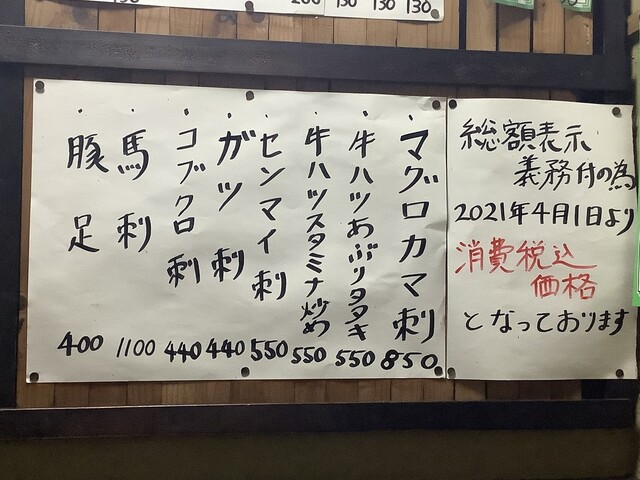 130 130 130
マグロカマ刺 850
牛ハツあぶりタタキ 550
牛ハツスタミナ炒め 550
センマイ刺 550
ガツ刺 440
コブクロ刺 440
馬刺 1100
豚足 400
総額表示
義務付の為
2021年4月1日より
消費税込
価格
となっております